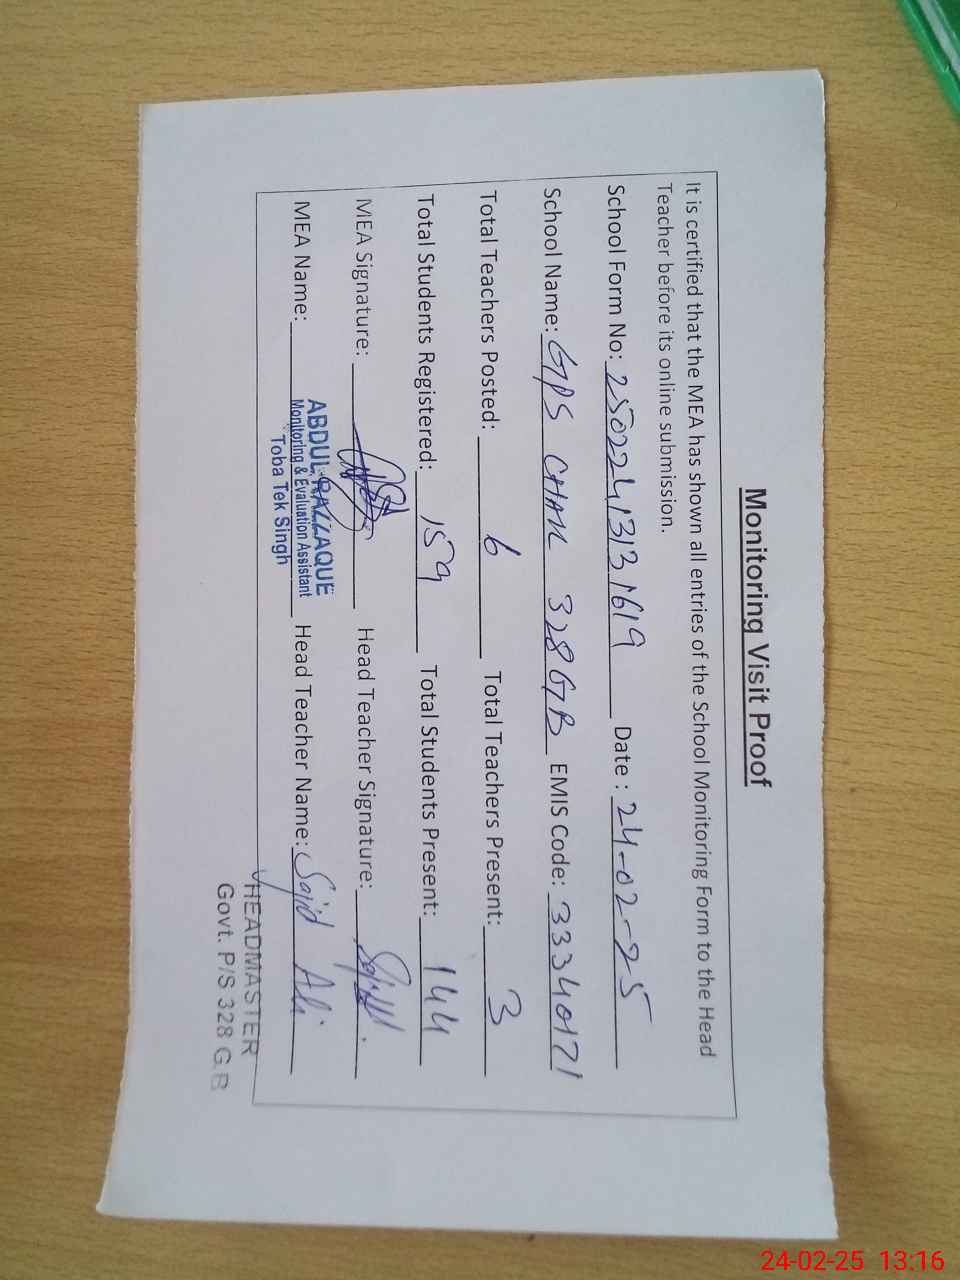 Monitoring Visit Proof
It is certified that the MEA has shown all entries of the School Monitoring Form to the Head
Teacher before its online submission.
School Form No: 250224131 31619 Date : 24-02-25
School Name: GPS CHAK 328GB EMIS Code: 33340171
Total Teachers Posted: 6 Total Teachers Present: 3
Total Students Registered: 159 Total Students Present: 144
MEA Signature: Head Teacher Signature:
MEA Name: ABDUL RAZZAQUE Head Teacher Name: Sajid Ali
Monitoring & Evaluation Assistant
Toba Tek Singh
HEADMASTER
Govt. P/S 328 G.B
24-02-25 13:16